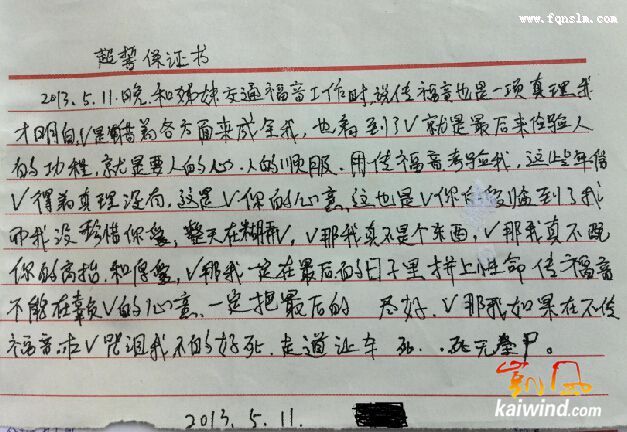 www.fqnslm.com
起誓保证书
2013.5.11.晚.和姊妹交通福音工作时,说传福音也是一项真理,我
才明白,V是借着各方面来成全我,也看到了V就是最后来经验人
的功程,就是要人的心.人的顺服.用传福音考验我,这些年信
V得着真理没有,这是V你的心意,这也是V你临到了我
而我没珍惜你爱,整天在糊弄V,V那我真不是个东西,V那我真不配
你的高抬.和厚爱,V那我一定在最后的日子里拼上性命传福音
不能在辜负V的心意.一定把最后的 尽好.V那我如果在不传
福音.求V咒诅我不的好死.走道让车 死..死无全尸。
2013.5.11.
凯风
kaiwind.com